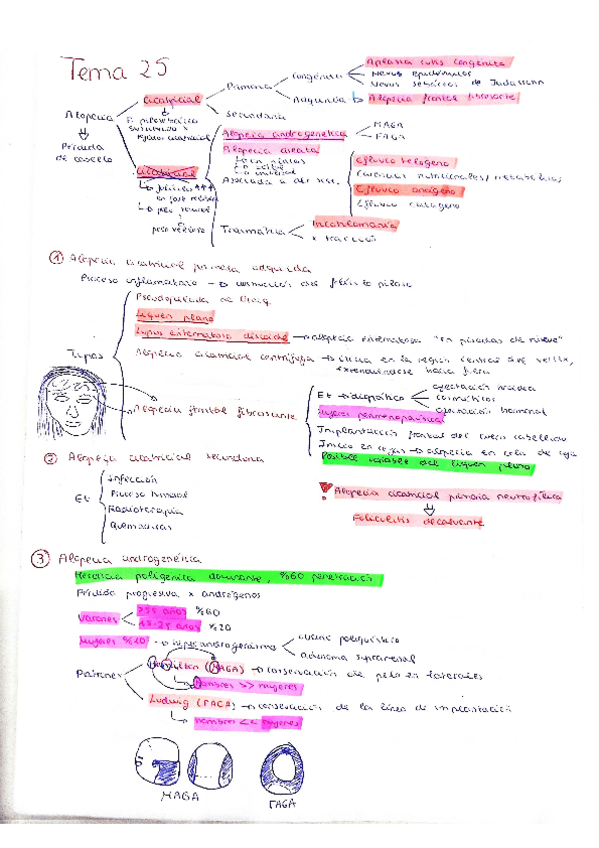 Tema 25
Alopecia
Pérdida de cabello
cicatricial
F. pilosebáceo sustituido x tejido cicatricial
Primaria
Congénita
Aplasia cutis congénita
Nevus epidérmicos
Nevus sebáceos de Jadassohn
Adquirida
Alopecia frontal fibrosante
Secundaria
cicatricial
Alopecia androgenética
MAGA
FAGA
Alopecia areata
en placas
universal
Asociada a
Efluvio telógeno
Carencias nutricionales/metabólicas
Efluvio anágeno
Efluvio catágeno
Traumática
Tricotilomanía
x tracción
① Alopecia cicatricial primaria adquirida
Proceso inflamatorio → destrucción del folículo piloso
Tipos
Pseudopelada de Brocq
Liquen plano
Lupus eritematoso discoide → alopecia eritematosa "en pisadas de nieve"
Alopecia cicatricial centrífuga → inicia en la región central del vertex,
extendiéndose hacia fuera
Alopecia frontal fibrosante
Et → idiopático
cosméticos
alteración hormonal
Mujeres perimenopáusicas
Implantación frontal del cuero cabelludo
Inicio en cejas → alopecia en cola de ceja
Posible variante del liquen plano
② Alopecia cicatricial secundaria
Et
Infección
Proceso tumoral
Radioterapia
Quemaduras
! Alopecia cicatricial primaria neutrofílica
Foliculitis decalvante
③ Alopecia androgenética
Herencia poligénica dominante, %60 penetración
Pérdida progresiva x andrógenos
Varones
%60
%20
Mujeres %20 → hiperandrogenismo
ovario poliquístico
adenoma suprarrenal
Patrones
Hamilton (MAGA) → conservación de pelo en laterales
Hombres >> mujeres
Ludwig (FAGA) → conservación de la línea de implantación
Hombres << mujeres
MAGA
FAGA